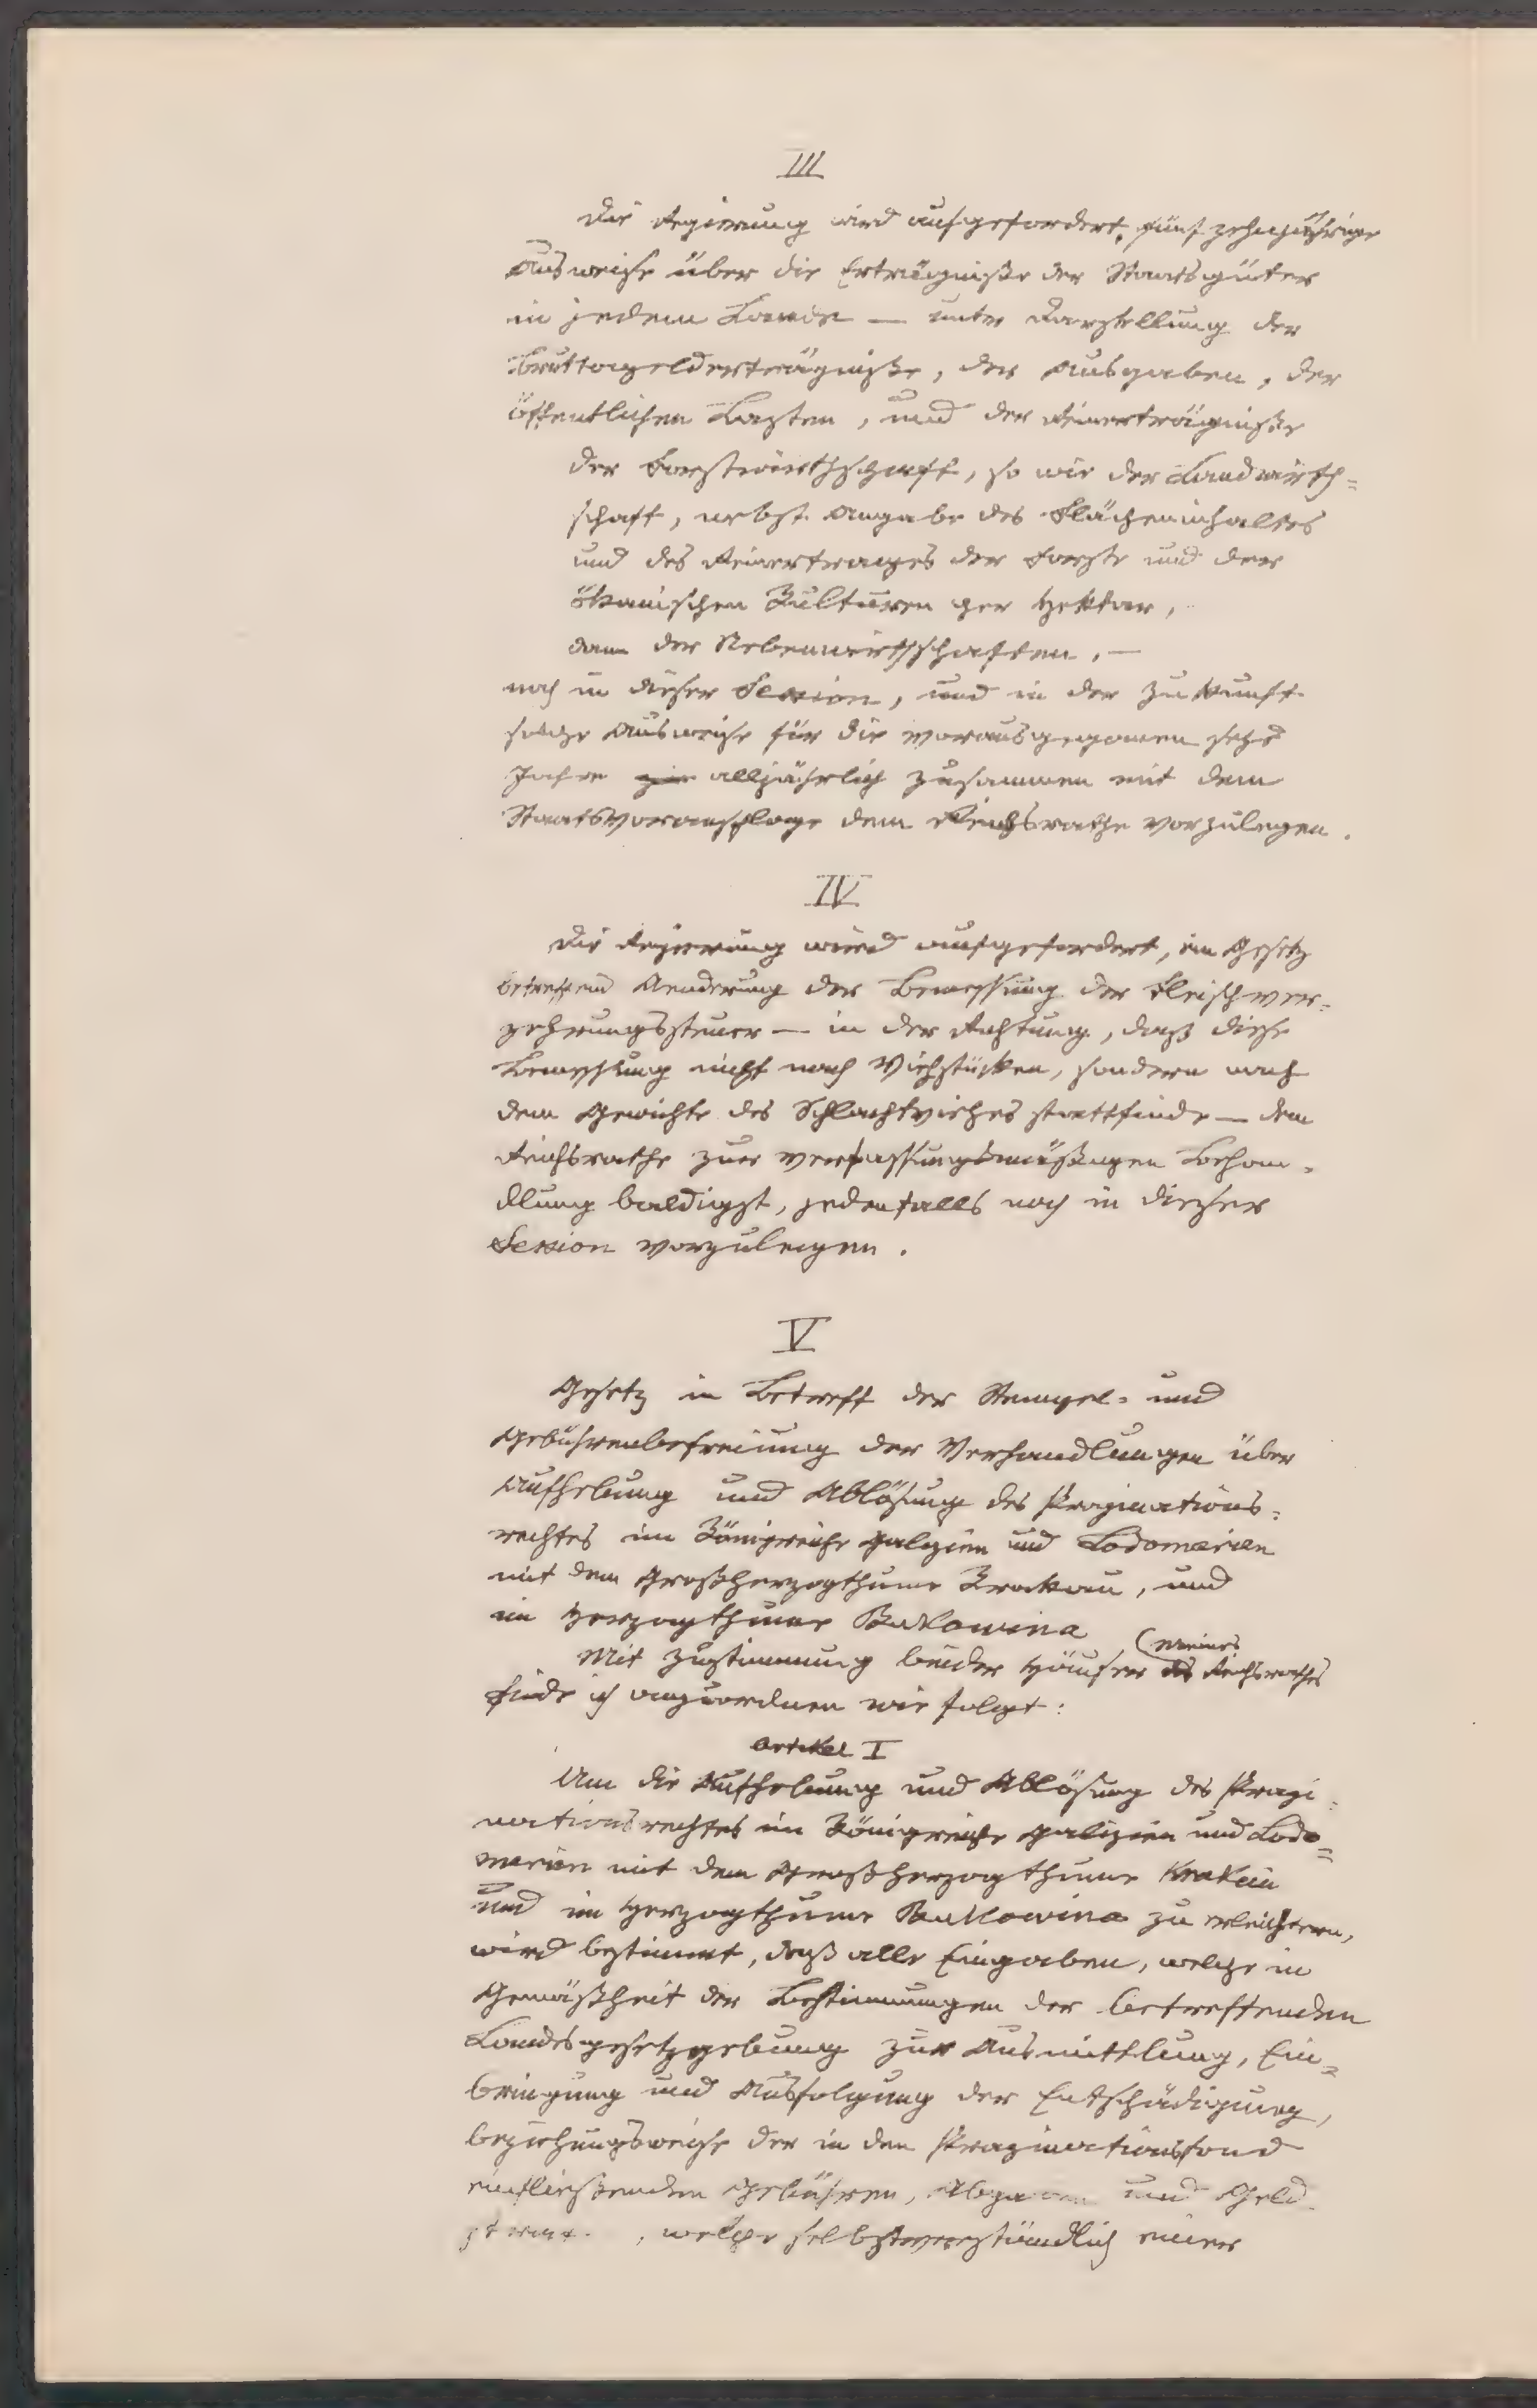 III
Die Regierung wird aufgefordert, fünf zehnjährige
Ausweise über die Erträgniße der Staatsgüter
in jedem Lande — unter Darstellung der
Bruttogelderträgniße, der Ausgaben, der
öffentlichen Lasten, und der Reinerträgniße
der Forstwirthschaft, so wie der Landwirth=
schaft, nebst Angabe des Flächeninhaltes
und des Reinertrages der Forste und der
ökonischen Kulturen per Hektar,
dann der Nebenwirthschaften, —
noch in dieser Session, und in der Zukunft
solche Ausweise für die vorausgegangenen sechs
Jahre alljährlich zusammen mit dem
Staatsvoranschlage dem Reichsrathe vorzulegen.
IV
Die Regierung wird aufgefordert, ein Gesetz
betreffend Aenderung der Bemessung der Fleischver=
zehrungssteuer — in der Richtung, daß diese
Bemessung nicht nach Viehstücken, sondern nach
dem Gewichte des Schlachtviehes stattfinde — dem
Reichsrathe zur verfassungsmäßigen Behan=
dlung baldigst, jedenfalls noch in dieser
Session vorzulegen.
V
Gesetz in Betreff der Stempel= und
Gebührenbefreiung der Verhandlungen über
Aufhebung und Ablösung des Propinations=
rechtes im Königreiche Galizien und Lodomerien
mit dem Großherzogthume Krakau, und
im Herzogthume Bukowina
Mit Zustimmung beider Häuser des (Meines Reichsrathes
finde ich anzuordnen wie folgt:
Artikel I
Um die Aufhebung und Ablösung des Propi=
nationsrechtes im Königreiche Galizien und Lodo=
merien mit dem Großherzogthume Krakau
und im Herzogthume Bukowina zu erleichtern,
wird bestimmt, daß alle Eingaben, welche in
Gemäßheit der Bestimmungen der betreffenden
Landesgesetzgebung zur Ausmittlung, Ein=
bringung und Ausfolgung der Entschädigung,
beziehungsweise der in den Propinationsfond
einfließenden Gebühren, Abgaben und Geld
, welche selbstverständlich einer